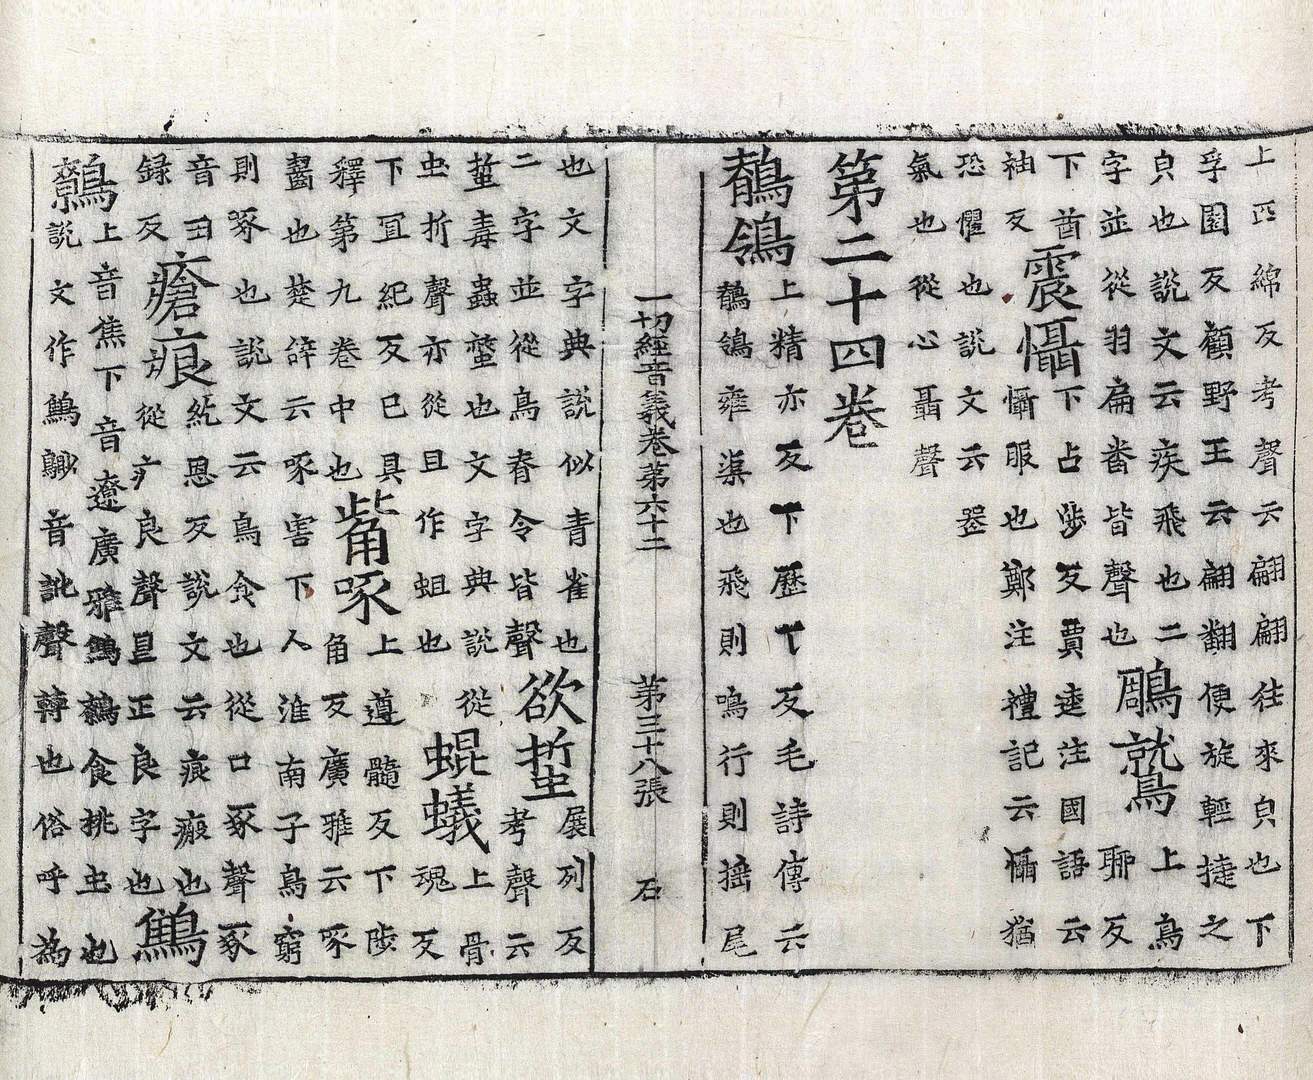 上匹綿反考聲云翩翩往來皃也下
孚園反顧野王云翩翻便旋輕捷之
皃也說文云疾飛也二
字並從羽扁番皆聲也
鵰鷲
上鳥
聊反
下酋
袖反
震懾
下占涉反賈逵注國語云
懾服也鄭注禮記云懾猶
恐懼也說文云噐
氣也從心聶聲
第二十四卷
鶺鴒
上精亦反下歷丁反毛詩傳云
鶺鴒雍渠也飛則鳴行則搖尾
一切經音義卷第六十二 第三十八張 石
也文字典說似青雀也
二字並從鳥脊令皆聲
欲蜇
展列反
考聲云
蜇毒蟲螫也文字典說從
虫折聲亦從且作蛆也
蜫蟻
上骨
魂反
下冝紀反已具
釋第九卷中也
觜啄
上遵髓反下陟
角反廣雅云啄
齧也楚辝云啄害下人淮南子鳥窮
則啄也說文云鳥食也從口豕聲豕
音丑
録反
瘡痕
紇恩反說文云痕瘢也
從疒良聲㫐正良字也
鷦鷯
上音焦下音遼廣雅鷦鷯食桃虫也
說文作鷦音訛聲轉也俗呼為